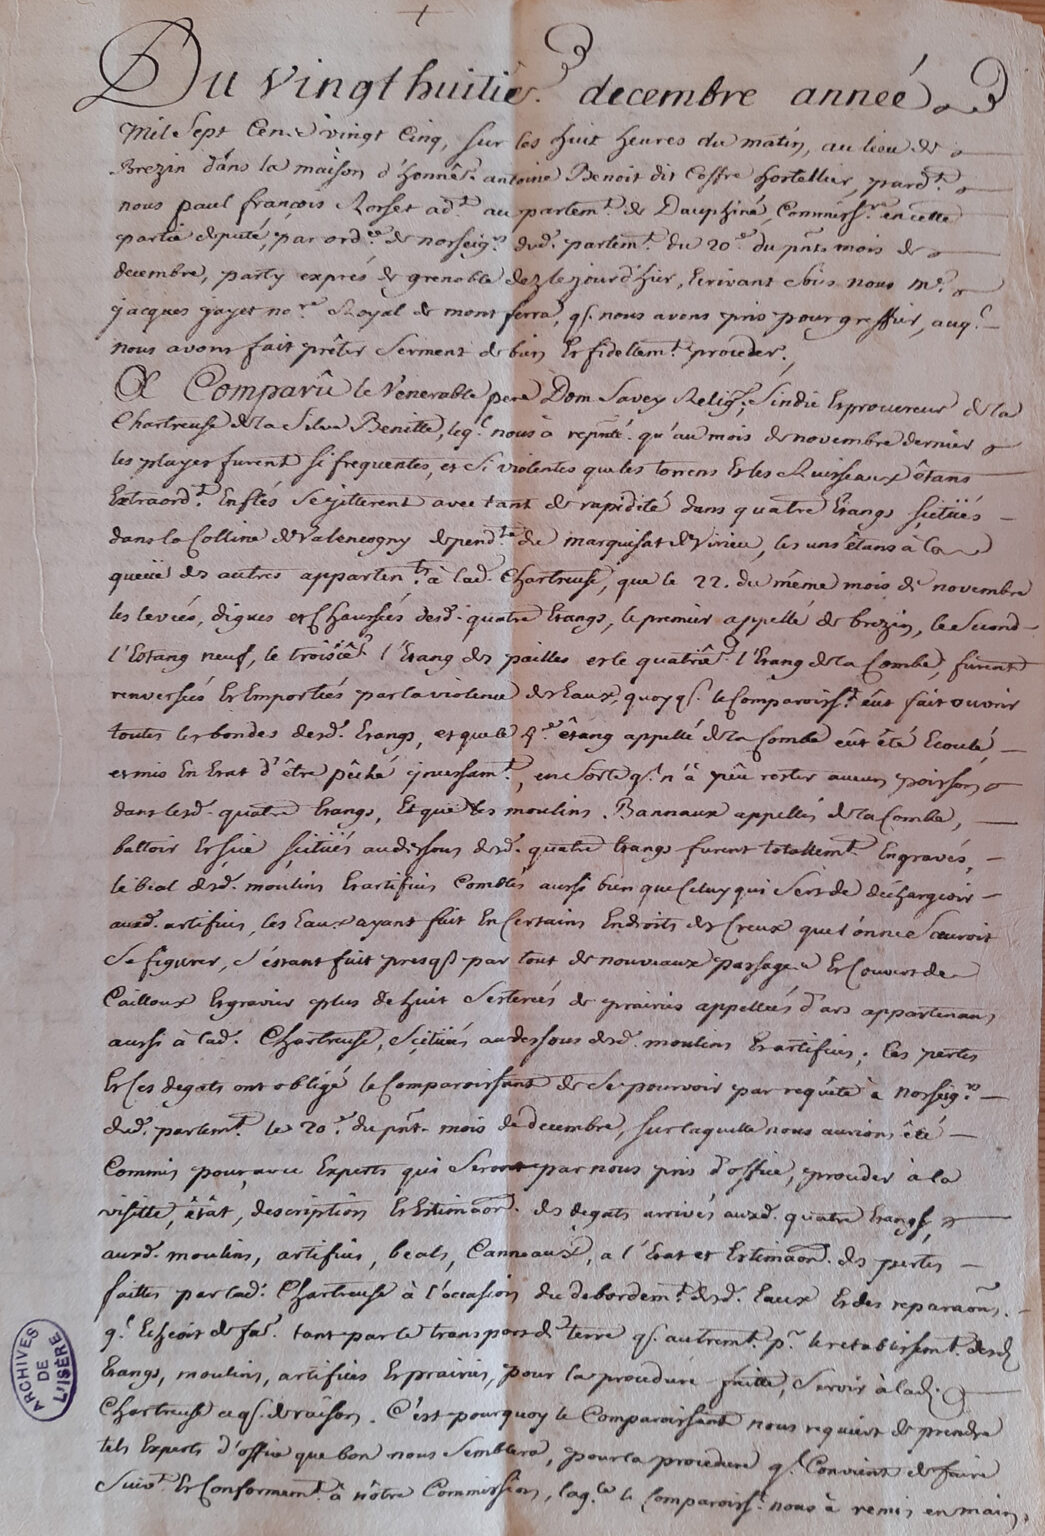 Du vingt huitiē. decembre année
Mil Sept Cens vingt Cinq, sur les huit heures du matin, au lieu de
Brezin dans la maison d'honnē. antoine Benoit dit Coffre hortellier, pardt.
nous paul françois Rosset adt. au partemt. de Dauphiné, Commissre. en cette
partie deputé, par ordce. de norseigrs. dudt. partemt. du 20e. du pnt. mois de
decembre, party exprés de grenoble dez le jourd'hier, Ecrivant sous nous me.
jacques jayet nore. Royal de mont ferra, q. nous avons pris pour greffier, auql.
nous avons fait prêter serment de bien et fidellemt. proceder.
A Comparû le Venerable pere Dom Savey Religx. Sindic et procureur de la
Chartreuse de la Silve Benitte, leql. nous à repnté. qu'au mois de novembre dernier
les pluyes furent si frequentes, et si violentes que les torrens et les Ruisseaux êtans
Extraordt. Enflés se jitterent avec tant de rapidité dans quatre Etangs scitüés
dans la Colline de Valencogny dependte. du marquisat de Virieu, les uns êtans à la
queüe des autres appartents. à lad. Chartreuse, que le 22. du même mois de novembre
les levées, digues et Chaussées desd. quatre Etangs, le premier appellé de brezin, le second
l'Estang neuf, le troisiē. l'Etang des pailles et le quatriē. l'Etang de la Combe, furent
renversés et Emportés par la violence des Eaux, quoy q. le Comparoisst. eût fait ouvrir
toutes les bondes desd. Etangs, et que le 4e. êtang appellé de la Combe eût été Ecoulé
et mis En Etat d'être pêché incessamt., en sorte q. n'à pêu rester aucun poisson
dans lesd. quatre Etangs, Et que les moulins Bannaux appellés de la Combe,
battoir et scie scitüés au dessous desd. quatre Etangs furent totallemt. Engravés,
le béal desd. moulins et artifices Comblés aussi bien que Celuy qui sert de déchargeoir
auxd. artifices, les Eaux ayant fait En Certains Endroits des Creux que l'on ne sçauroit
se figurer, s'étant fait presq. par tout de nouveaux passages et Couvert de
Cailloux et gravier plus de huit Seterées de prairies appellées d'ars appartenans
aussi à lad. Chartreuse, scitüées au dessous desd. moulins et artifices; Ces pertes
et Ces degats ont obligé le Comparoissant de se pourvoir par requête à norseigrs.
dud. partemt. le 20e. du pnt. mois de decembre, sur laquelle nous aurions été
Commis pour, avec Experts qui seront par nous pris d'office, proceder à la
visitte, êtât, description et Estimaon. des degats arrivés auxd. quatre Etangs,
auxd. moulins, artifices, beals, Canneaux, a l'Etat et Estimaon. des pertes
faittes par lad. Chartreuse à l'occasion du debordemt. desd. Eaux et des reparaons.
q. Echeoit de fae. tant par le transport de terre q. autremt. pr. le retablissemt. desd.
Etangs, moulins, artifices et prairies, pour la procedure faitte, servir à lad.
Chartreuse ce q. de raison. C'est pourquoy le Comparoissant nous requiert de prendre
tels Experts d'office que bon nous semblera, pour la procedure q. Convient de faire
suivt. et Conformemt. à nôtre Commission, laqle. le Comparoisst. nous à remis en main,
ARCHIVES DE L'ISÈRE